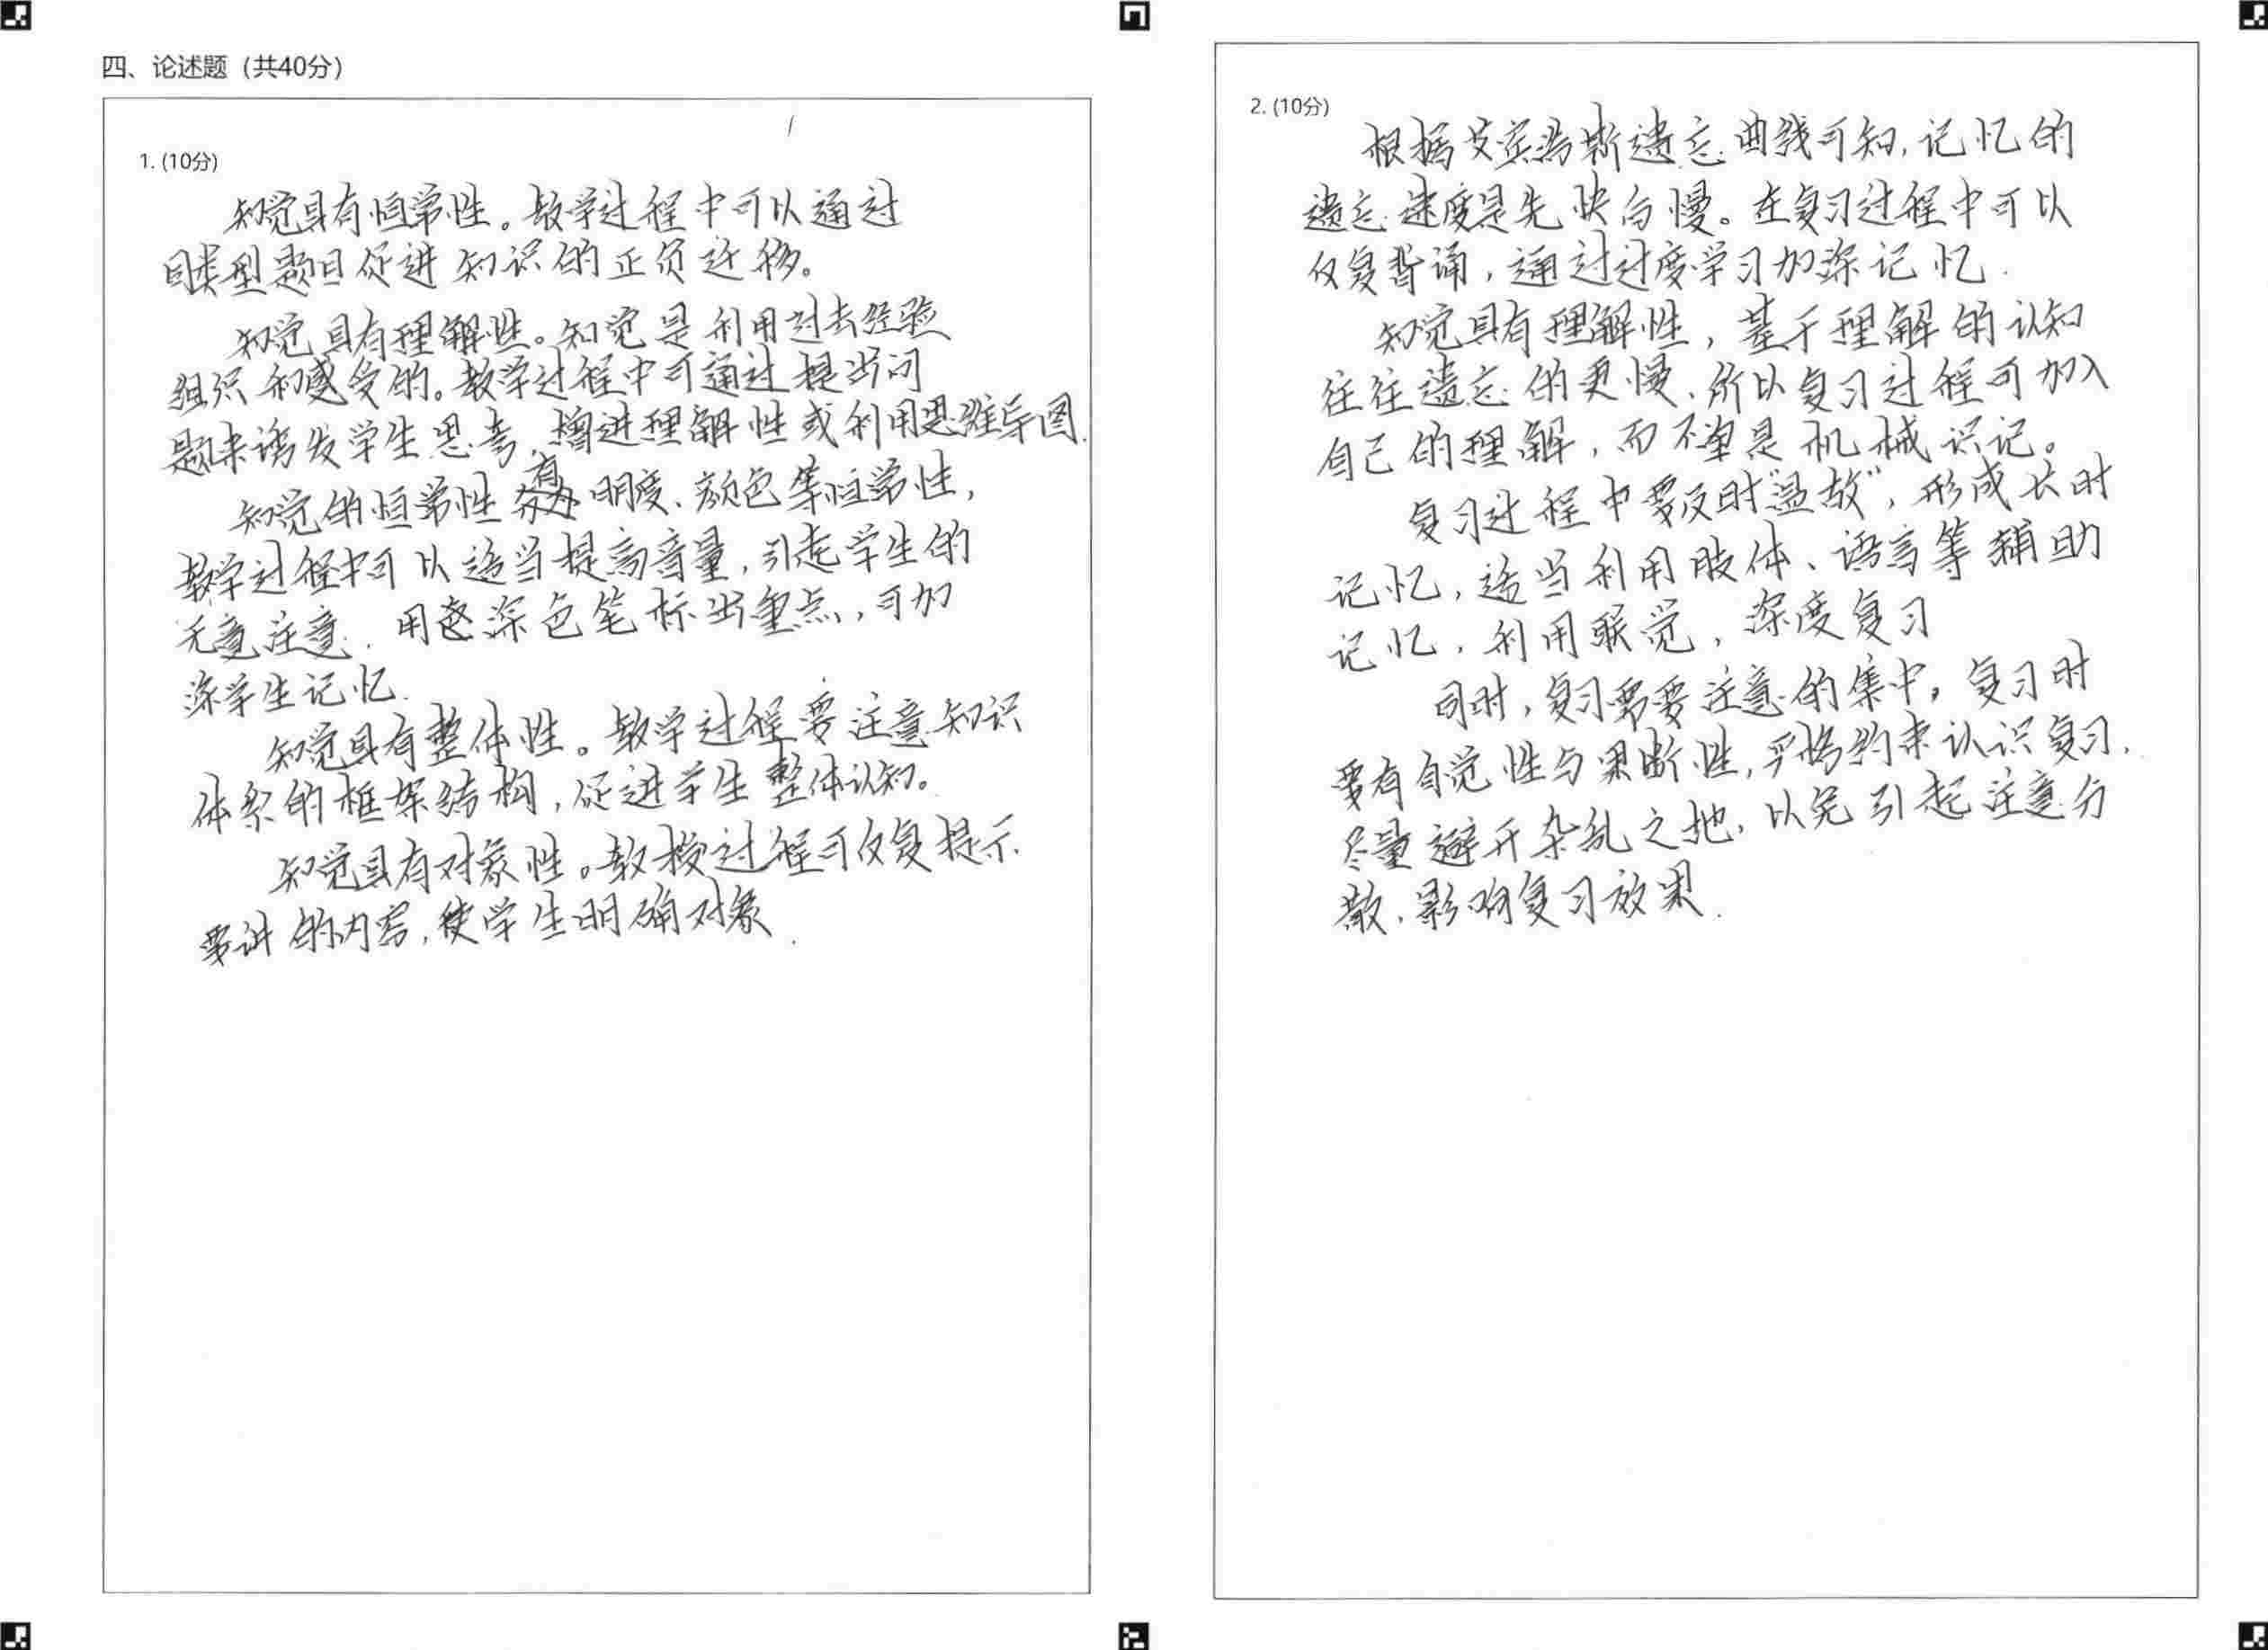 四、论述题（共40分）
1. (10分)
知觉具有恒常性。教学过程中可以通过
同类型题目促进知识的正负迁移。
知觉具有理解性。知觉是利用过去经验
组织和感受的。教学过程中可通过提出问
题来诱发学生思考，增进理解性或利用思维导图.
知觉的恒常性有明度、颜色等恒常性，
教学过程中可以适当提高音量，引起学生的
无意注意. 用深色笔标出重点，可加
深学生记忆.
知觉具有整体性。教学过程要注意知识
体系的框架结构，促进学生整体认知。
知觉具有对象性。教授过程可反复提示
要讲的内容，使学生明确对象.
2. (10分)
根据艾宾浩斯遗忘曲线可知，记忆的
遗忘速度是先快后慢。在复习过程中可以
反复背诵，通过过度学习加深记忆.
知觉具有理解性，基于理解的认知
往往遗忘的更慢、所以复习过程可加入
自己的理解，而不单是机械识记。
复习过程中要及时“温故”，形成长时
记忆，适当利用肢体、语言等辅助
记忆，利用联觉，深度复习
同时，复习需要注意的集中，复习时
要有自觉性与果断性，严格约束认识复习.
尽量避开杂乱之地，以免引起注意分
散，影响复习效果.